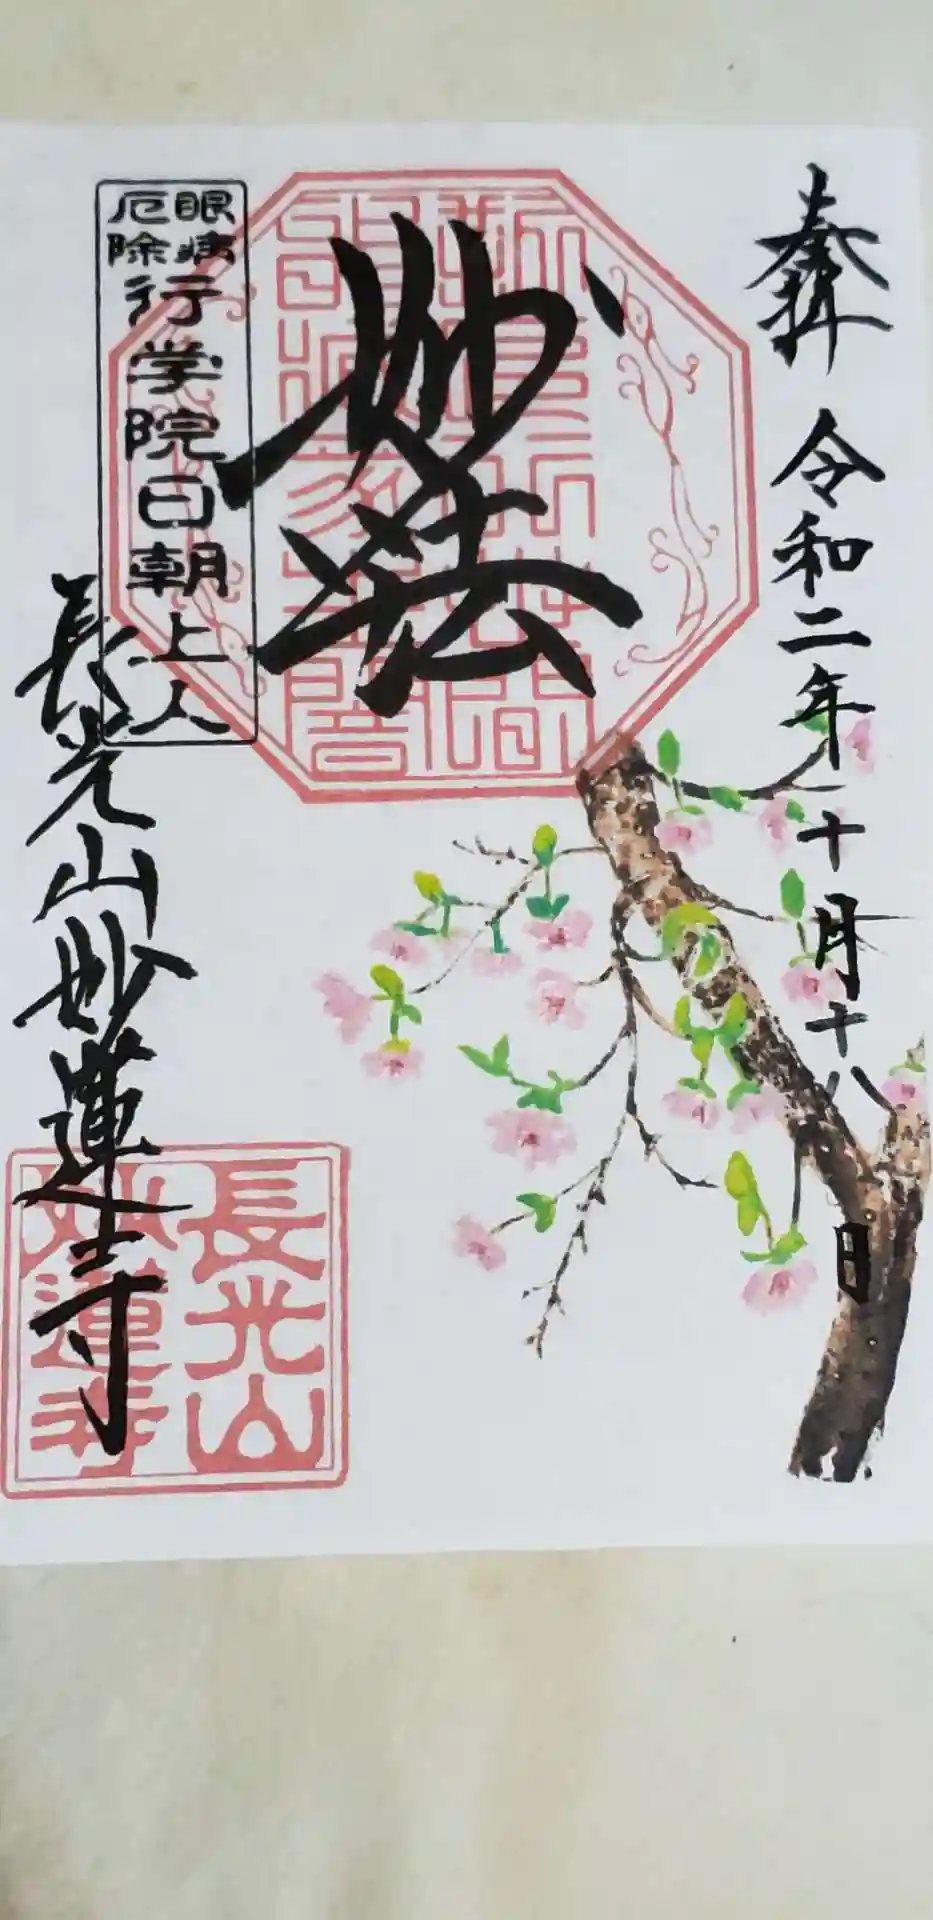 奉拝
令和二年十月十八日
妙法
眼病
厄除
行学院日朝上人
長光山妙蓮寺
長光山
妙蓮寺